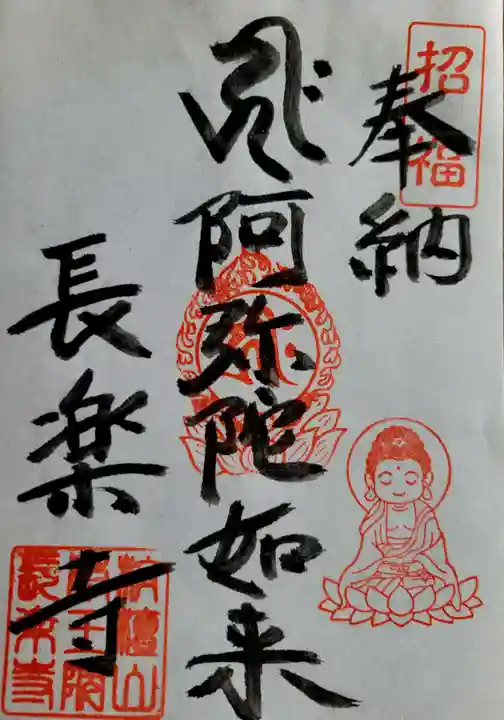 招福
奉納
阿弥陀如来
長楽寺